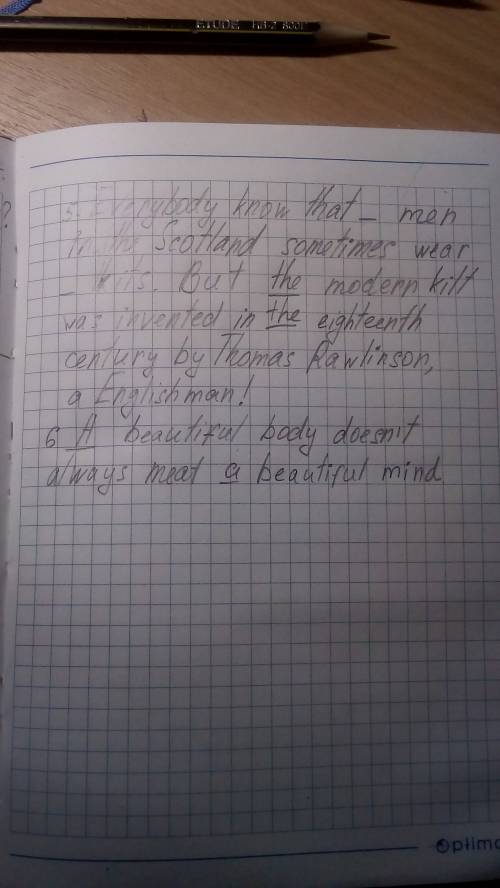 ETUDE HB-2
5. Everybody know that _ men
in the Scotland sometimes wear
_ kits. But the modern kilt
was invented in the eighteenth
century by Thomas Rawlinson,
a Englishman!
6 A beautiful body doesn't
always meat a beautiful mind
Optima